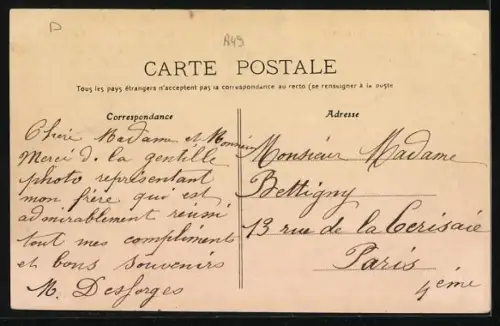 D
A49
CARTE POSTALE
Tous les pays étrangers n'acceptent pas la correspondance au recto (se renseigner à la poste
Correspondance
Chère Madame et Monsieur
Merci d. la gentille
photo représentant
mon frère qui est
admirablement réussi
tout mes compliments
et bons souvenirs
M. Desforges
Adresse
Monsieur Madame
Bettigny
13 rue de la Cerisaie
Paris
4ème